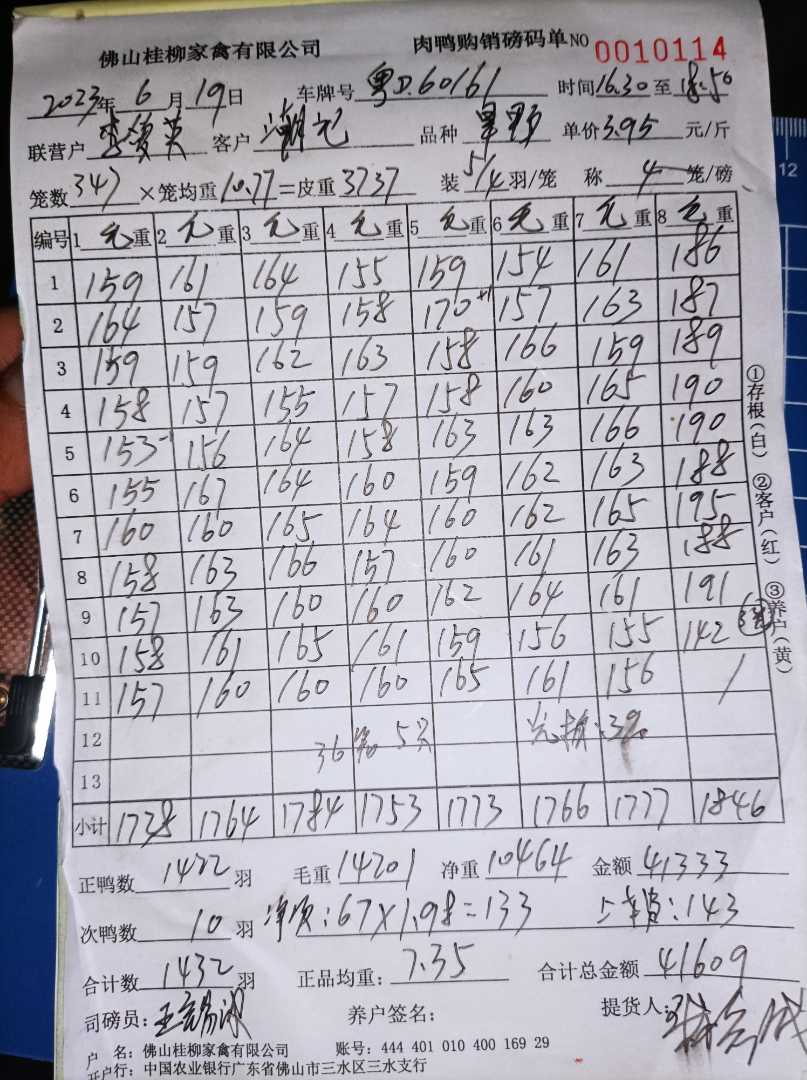 佛山桂柳家禽有限公司 肉鸭购销磅码单 NO 0010114
2023年 6月 19日 车牌号 粤D.60161 时间 16.30 至 18:50
联营户 客户 品种 单价 3.95 元/斤
笼数 347 ×笼均重 10.77 =皮重 3737 装 5/4 羽/笼 称 4 笼/磅
编号 1 毛 重 2 毛 重 3 毛 重 4 毛 重 5 毛 重 6 毛 重 7 毛 重 8 毛 重
1 159 161 164 155 159 154 161 186
2 164 157 159 158 170 +1 157 163 187
3 159 159 162 163 158 166 159 189
4 158 157 155 157 158 160 165 190
5 153 -1 156 164 158 163 163 166 190
6 155 167 164 160 159 162 163 188
7 160 160 165 164 160 162 165 195
8 158 163 166 157 160 161 163 188
9 157 163 160 160 162 164 161 191
10 158 161 165 161 159 156 155 142
11 157 160 160 160 165 161 156 /
12 36 5只
13
小计 1738 1764 1784 1753 1773 1766 1777 1846
正鸭数 1422 羽 毛重 14201 净重 10464 金额 41333
次鸭数 10 羽 :67×1.98=133 :143
合计数 1432 羽 正品均重: 7.35 合计总金额 41609
司磅员: 养户签名: 提货人:
户 名: 佛山桂柳家禽有限公司 账号: 444 401 010 400 169 29
开户行: 中国农业银行广东省佛山市三水区三水支行
①存根(白) ②客户(红) ③养户(黄)
12